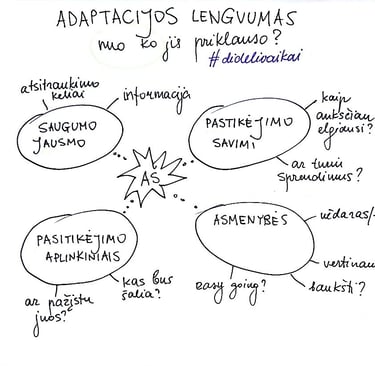 ADAPTACIJOS LENGVUMAS
nuo ko jis priklauso?
#dideliovaikai
atsitraukimo
keliai
informacija
SAUGUMO
JAUSMO
PASTIKĖJIMO
SAVIMI
kaip
anksčiau
elgiausi?
ar turiu
sprendimus?
AŠ
PASITIKĖJIMO
APLINKINIAIS
ar pažįstu
juos?
kas bus
šalia?
ASMENYBĖS
uždaras/
easy going?
vertinau
aukšti?